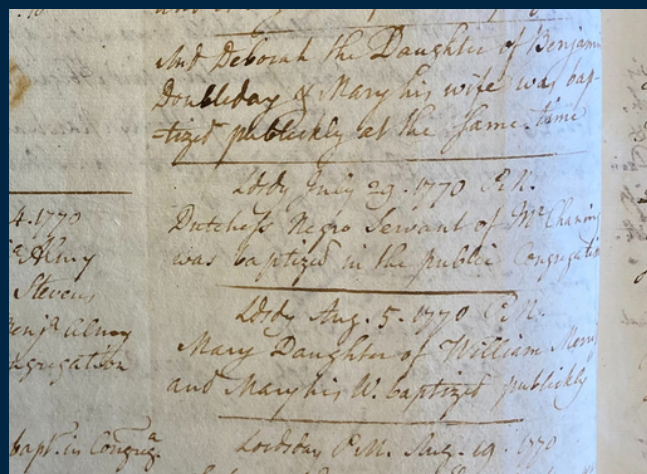 And Deborah the Daughter of Benjam
Doubleday & Mary his wife was bap-
tized publickly at the same time
Ldsdy July 29. 1770 P.M.
Dutchess Negro Servant of Mr Chaning
was baptized in the public Congregatio
Ldsdy Aug. 5. 1770 P.M.
Mary Daughter of William
and Mary his W. baptized publickly
Lordsday P.M. Aug. 19. 1770
4. 1770
Almy
Stevens
Benja Almy
ongregation
bapt. in Congrega